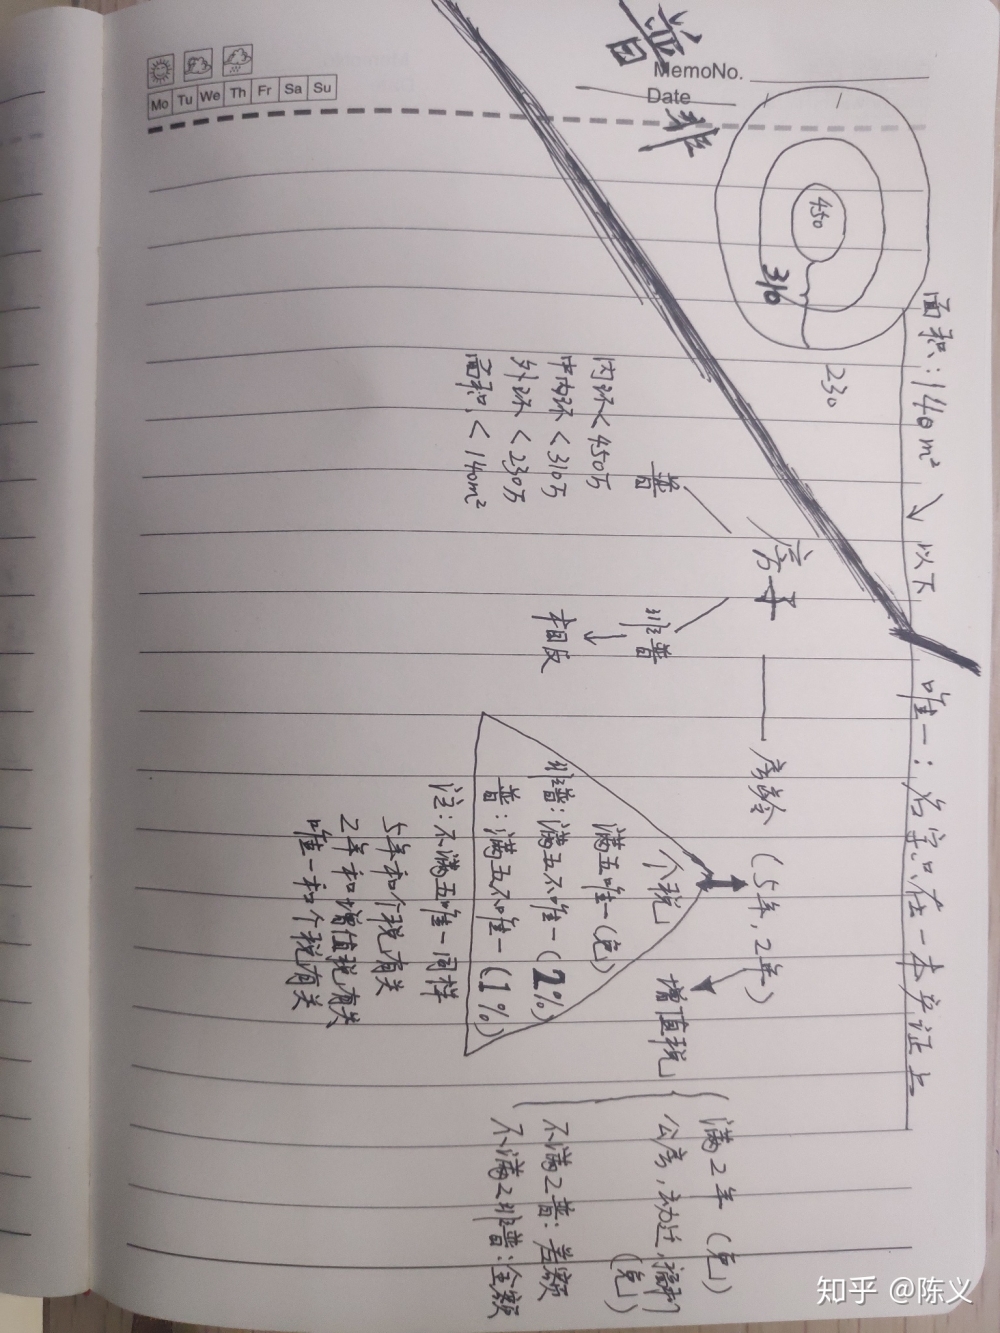 MemoNo.
Date
Mo Tu We Th Fr Sa Su
普
非
450
310
230
面积:140m² ↘ 以下
唯一:名字只在一本产证上
房子
普
内环<450万
中内环<310万
外环<230万
面积<140m²
非普
↓
相反
房龄 (5年,2年)
个税
满五唯一(免)
非普:满五不唯一(2%)
普:满五不唯一(1%)
注:不满五唯一同样
5年和个税有关
2年和增值税有关
唯一和个税有关
增值税
满2年 (免)
公房,动迁,
(免)
不满2普:差额
不满2非普:全额
知乎 @陈义